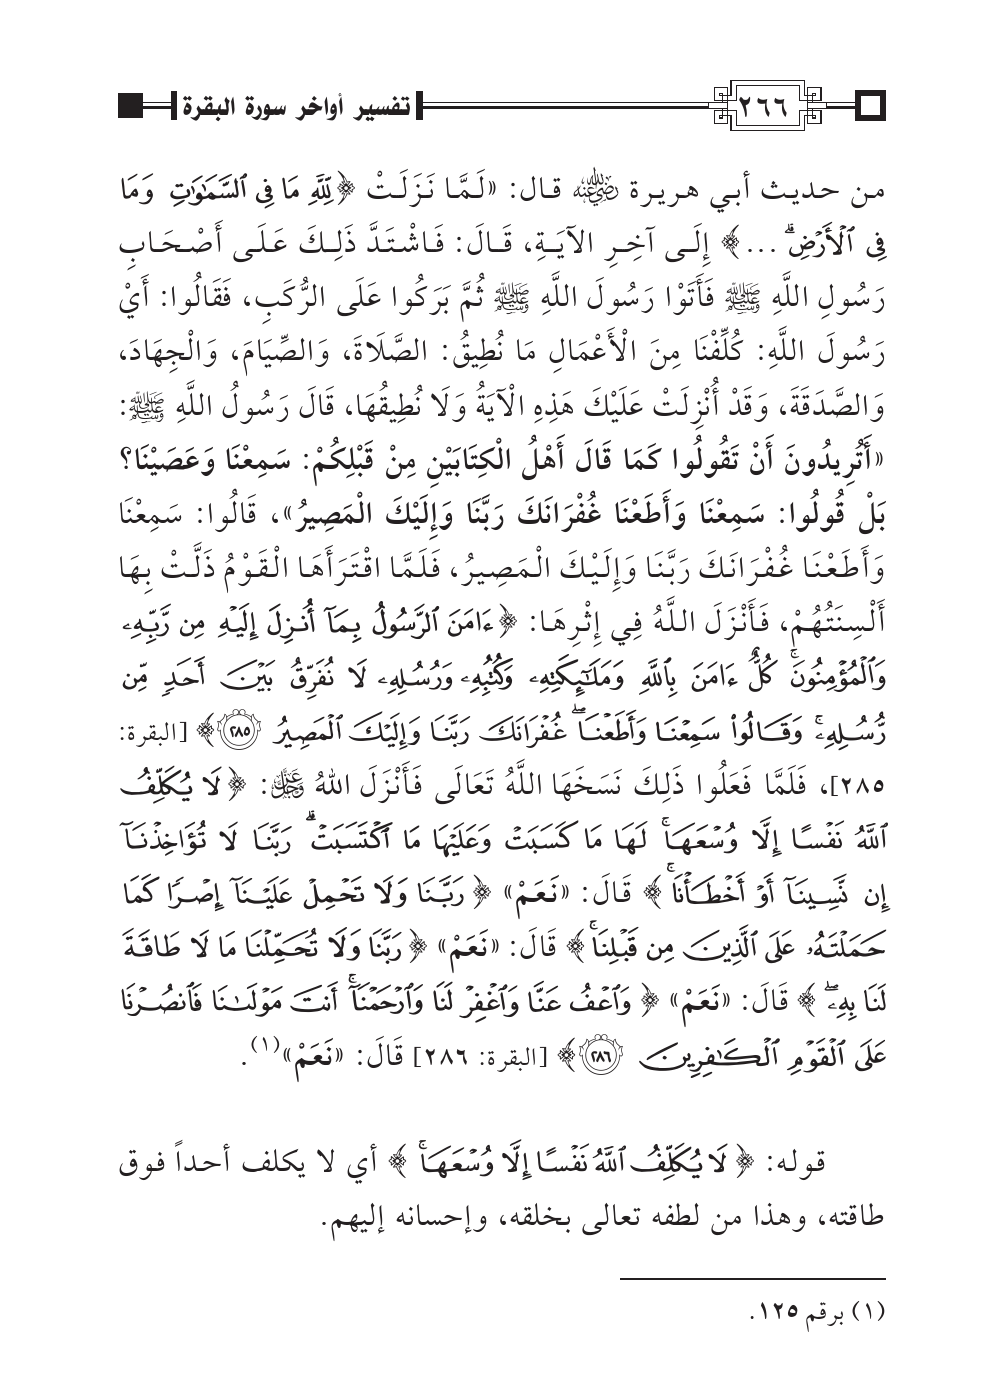 ٢٦٦ تفسير أواخر سورة البقرة
من حديث أبي هريرة رضي الله عنه قال: «لَمَّا نَزَلَتْ ﴿لِّلَّهِ مَا فِي ٱلسَّمَٰوَٰتِ وَمَا
فِي ٱلْأَرْضِۗ ...﴾ إِلَى آخِرِ الآيَةِ، قَالَ: فَاشْتَدَّ ذَلِكَ عَلَى أَصْحَابِ
رَسُولِ اللَّهِ ﷺ فَأَتَوْا رَسُولَ اللَّهِ ﷺ ثُمَّ بَرَكُوا عَلَى الرُّكَبِ، فَقَالُوا: أَيْ
رَسُولَ اللَّهِ: كُلِّفْنَا مِنَ الْأَعْمَالِ مَا نُطِيقُ: الصَّلَاةَ، وَالصِّيَامَ، وَالْجِهَادَ،
وَالصَّدَقَةَ، وَقَدْ أُنْزِلَتْ عَلَيْكَ هَذِهِ الْآيَةُ وَلَا نُطِيقُهَا، قَالَ رَسُولُ اللَّهِ ﷺ:
«أَتُرِيدُونَ أَنْ تَقُولُوا كَمَا قَالَ أَهْلُ الْكِتَابَيْنِ مِنْ قَبْلِكُمْ: سَمِعْنَا وَعَصَيْنَا؟
بَلْ قُولُوا: سَمِعْنَا وَأَطَعْنَا غُفْرَانَكَ رَبَّنَا وَإِلَيْكَ الْمَصِيرُ»، قَالُوا: سَمِعْنَا
وَأَطَعْنَا غُفْرَانَكَ رَبَّنَا وَإِلَيْكَ الْمَصِيرُ، فَلَمَّا اقْتَرَأَهَا الْقَوْمُ ذَلَّتْ بِهَا
أَلْسِنَتُهُمْ، فَأَنْزَلَ اللَّهُ فِي إِثْرِهَا: ﴿ءَامَنَ ٱلرَّسُولُ بِمَآ أُنزِلَ إِلَيْهِ مِن رَّبِّهِۦ
وَٱلْمُؤْمِنُونَۚ كُلٌّ ءَامَنَ بِٱللَّهِ وَمَلَٰٓئِكَتِهِۦ وَكُتُبِهِۦ وَرُسُلِهِۦ لَا نُفَرِّقُ بَيْنَ أَحَدٍ مِّن
رُّسُلِهِۦۚ وَقَالُوا۟ سَمِعْنَا وَأَطَعْنَاۖ غُفْرَانَكَ رَبَّنَا وَإِلَيْكَ ٱلْمَصِيرُ ٢٨٥﴾ [البقرة:
٢٨٥]، فَلَمَّا فَعَلُوا ذَلِكَ نَسَخَهَا اللَّهُ تَعَالَى فَأَنْزَلَ اللهُ عز وجل: ﴿لَا يُكَلِّفُ
ٱللَّهُ نَفْسًا إِلَّا وُسْعَهَاۚ لَهَا مَا كَسَبَتْ وَعَلَيْهَا مَا ٱكْتَسَبَتْۗ رَبَّنَا لَا تُؤَاخِذْنَآ
إِن نَّسِينَآ أَوْ أَخْطَأْنَاۚ﴾ قَالَ: «نَعَمْ» ﴿رَبَّنَا وَلَا تَحْمِلْ عَلَيْنَآ إِصْرًا كَمَا
حَمَلْتَهُۥ عَلَى ٱلَّذِينَ مِن قَبْلِنَاۚ﴾ قَالَ: «نَعَمْ» ﴿رَبَّنَا وَلَا تُحَمِّلْنَا مَا لَا طَاقَةَ
لَنَا بِهِۦۖ﴾ قَالَ: «نَعَمْ» ﴿وَٱعْفُ عَنَّا وَٱغْفِرْ لَنَا وَٱرْحَمْنَآۚ أَنتَ مَوْلَىٰنَا فَٱنصُرْنَا
عَلَى ٱلْقَوْمِ ٱلْكَٰفِرِينَ ٢٨٦﴾ [البقرة: ٢٨٦] قَالَ: «نَعَمْ»(١).
قوله: ﴿لَا يُكَلِّفُ ٱللَّهُ نَفْسًا إِلَّا وُسْعَهَاۚ﴾ أي لا يكلف أحداً فوق
طاقته، وهذا من لطفه تعالى بخلقه، وإحسانه إليهم.
(١) برقم ١٢٥.